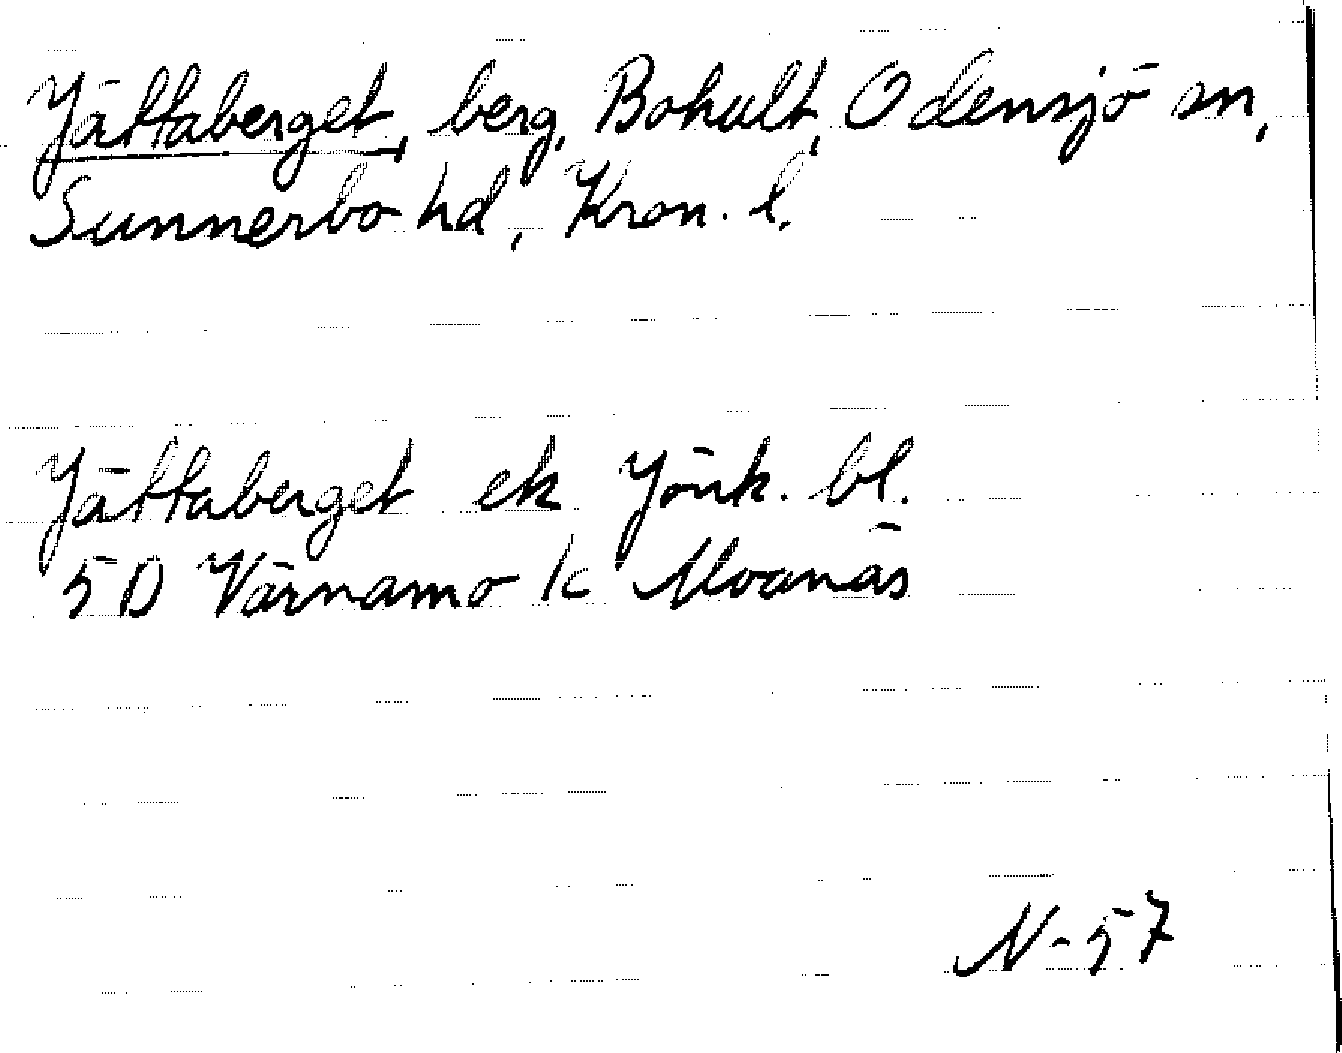 Jättaberget, berg, Bohult, Odensjö sn,
Sunnerbo hd, Kron. l.
Jättaberget ek Jönk. bl.
5D Värnamo 1c Moanäs
N-57